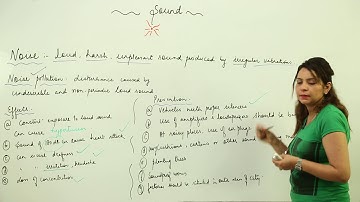 Sound
Noise :- Loud, harsh, unpleasant sound produced by irregular vibrations
Noise pollution:- disturbance caused by
undesirable and non-periodic loud sound
Effects:-
Prevention:-
(a) Constant exposure to loud sound
can cause hypertension
(b) Sound of 180dB can cause heart attack
(c) can cause deafness
(d) irritation, headache
(e) Loss of concentration
(a) Vehicles with proper silencers
(b) Use of amplifiers & loudspeakers should be
(c) At noisy places, use of ear plugs
curtains or other sound
planting trees
soundproof rooms
factories should be situated in outer area of city